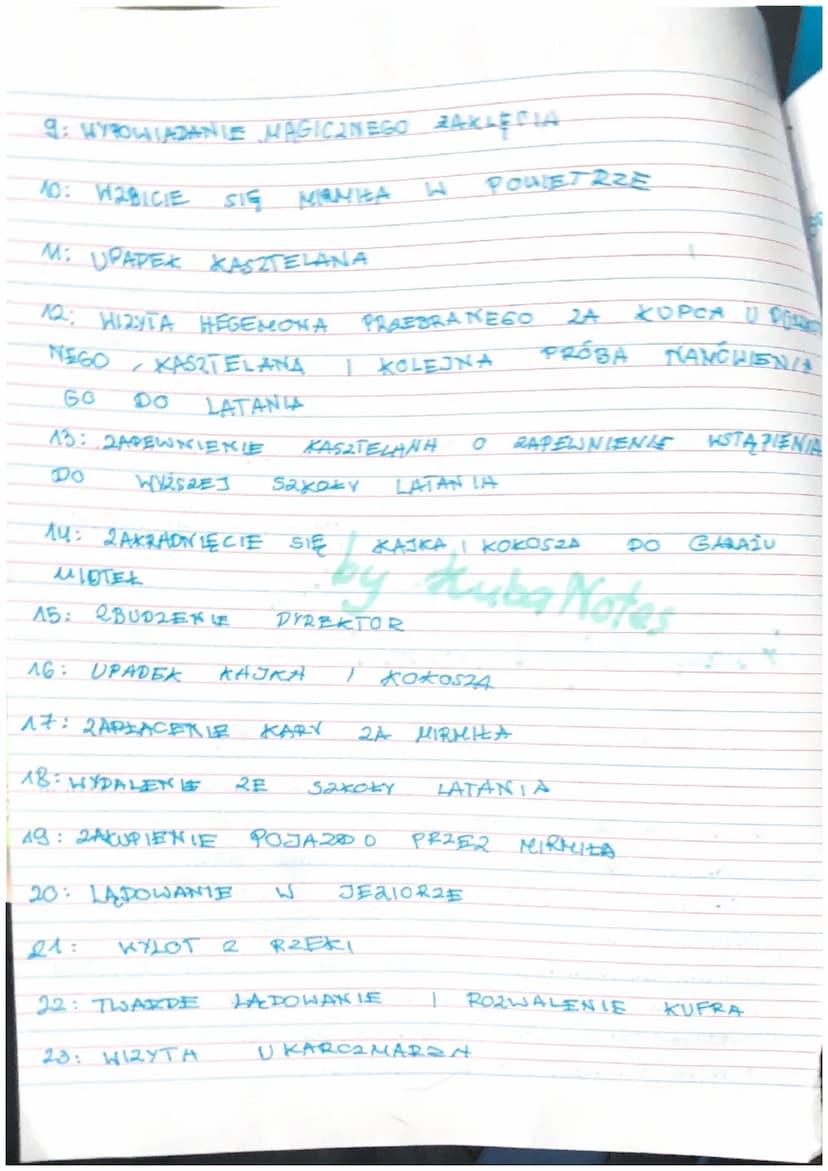 9: WYPOWIADANIE MAGICZNEGO ZAKLĘCIA
10: WZBICIE SIĘ MIRMIŁA W POWIETRZE
11: UPADEK KASZTELANA
12: WIZYTA HEGEMONA PRZEBRANEGO ZA KUPCA U
NEGO KASZTELANA I KOLEJNA PRÓBA NAMÓWIENIA
GO DO LATANIA
13: ZAPEWNIENIE KASZTELANA O ZAPEWNIENIE WSTĄPIENIA
DO WYŻSZEJ SZKOŁY LATANIA
14: ZAKRADNIĘCIE SIĘ KAJKA I KOKOSZA DO GARAŻU
MIOTEŁ
by KubaNotes
15: ZBUDZENIE DYREKTOR
16: UPADEK KAJKA I KOKOSZA
17: ZAPŁACENIE KARY ZA MIRMIŁA
18: WYDALENIE ZE SZKOŁY LATANIA
19: ZAKUPIENIE POJAZDO PRZEZ MIRMIŁA
20: LĄDOWANIE W JEZIORZE
21: WYLOT Z RZEKI
22: TWARDE LĄDOWANIE I ROZWALENIE KUFRA
23: WIZYTA U KARCZMARZA